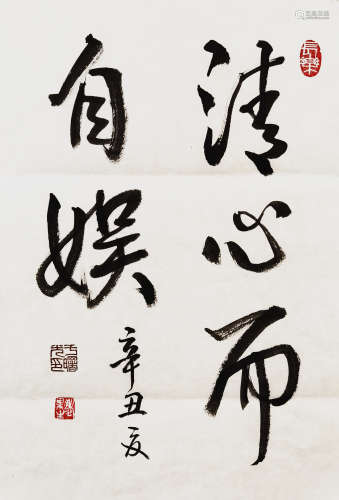 清心而
自娱
辛丑夏
長樂